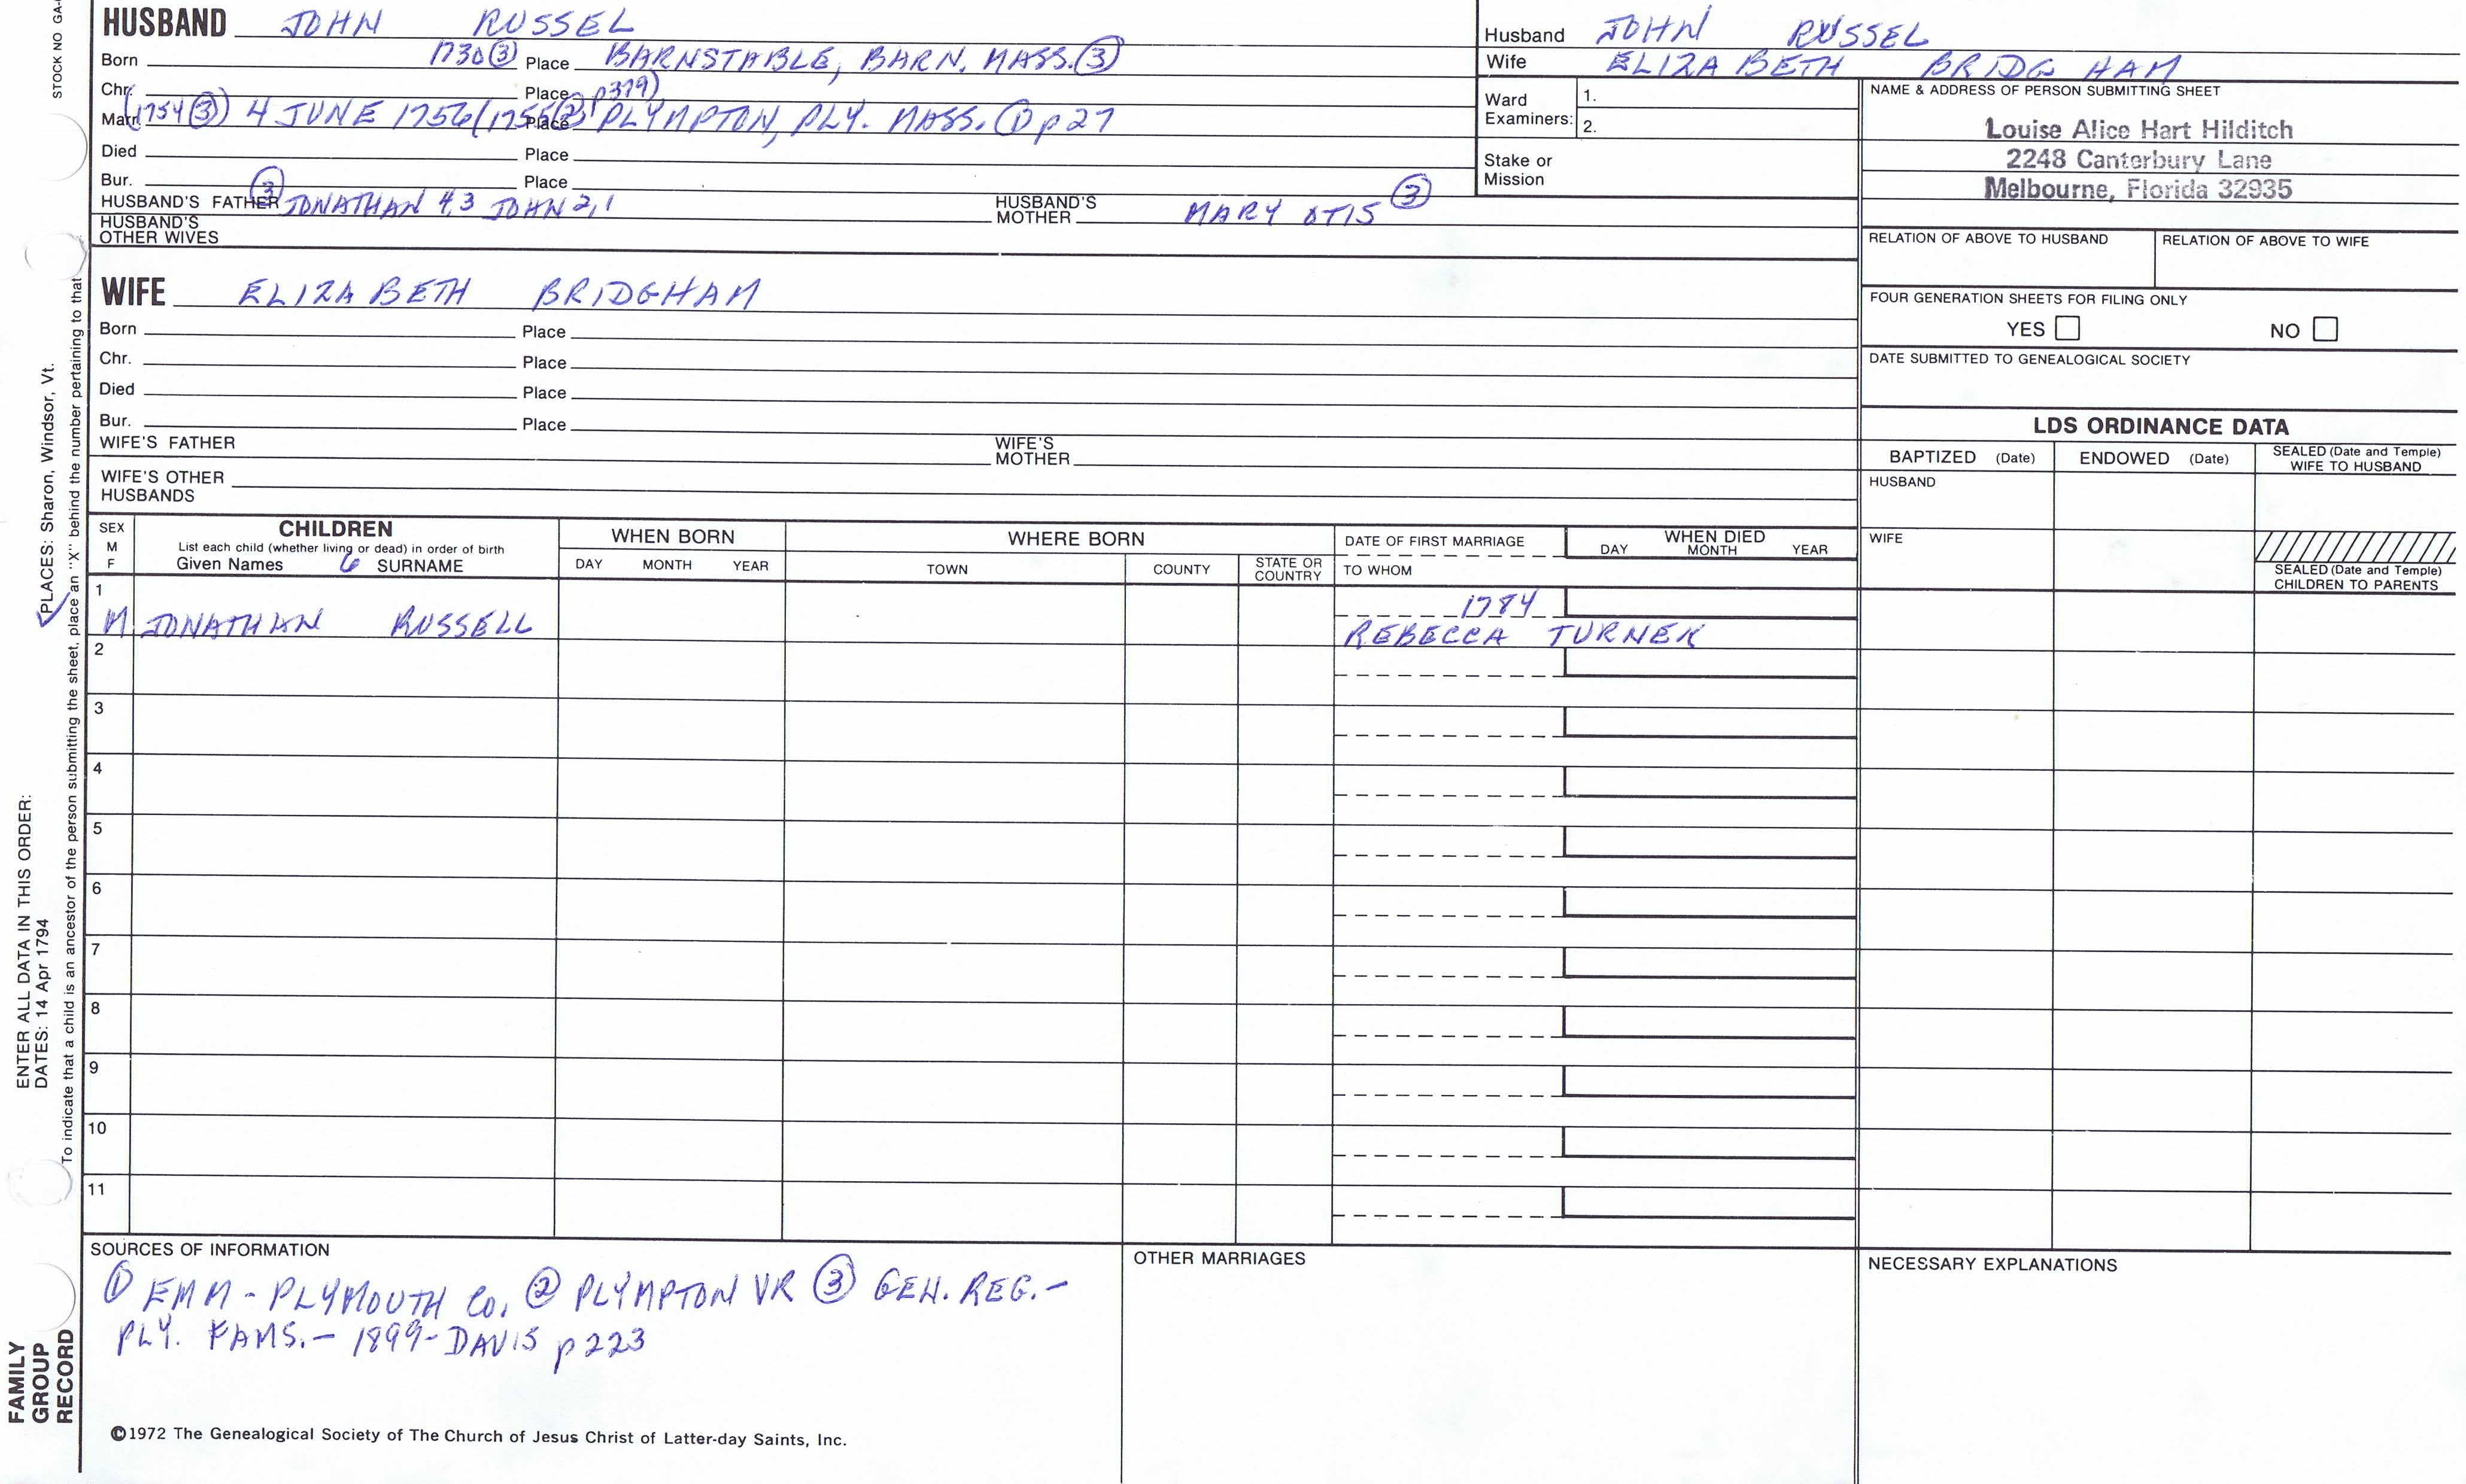 HUSBAND JOHN RUSSEL
Born 1730 ③ Place BARNSTABLE, BARN. MASS. ③
Chr. Place p379)
Marr. (1754 ③) 4 JUNE 1756 (1755 ② Place PLYMPTON, PLY. MASS. ① p 27
Died Place
Bur. Place
HUSBAND'S FATHER ③ JONATHAN 4,3 JOHN 2,1 HUSBAND'S MOTHER MARY OTIS ③
HUSBAND'S OTHER WIVES
Husband JOHN RUSSEL
Wife ELIZABETH BRIDGHAM
Ward Examiners: 1.
2.
Stake or Mission
NAME & ADDRESS OF PERSON SUBMITTING SHEET
Louise Alice Hart Hilditch
2248 Canterbury Lane
Melbourne, Florida 32935
RELATION OF ABOVE TO HUSBAND RELATION OF ABOVE TO WIFE
FOUR GENERATION SHEETS FOR FILING ONLY
YES NO
DATE SUBMITTED TO GENEALOGICAL SOCIETY
WIFE ELIZABETH BRIDGHAM
Born Place
Chr. Place
Died Place
Bur. Place
WIFE'S FATHER WIFE'S MOTHER
WIFE'S OTHER HUSBANDS
LDS ORDINANCE DATA
BAPTIZED (Date) ENDOWED (Date) SEALED (Date and Temple) WIFE TO HUSBAND
HUSBAND
WIFE
SEALED (Date and Temple)
CHILDREN TO PARENTS
SEX M F
CHILDREN
List each child (whether living or dead) in order of birth
Given Names 6 SURNAME
WHEN BORN
DAY MONTH YEAR
WHERE BORN
TOWN COUNTY STATE OR COUNTRY
DATE OF FIRST MARRIAGE
TO WHOM
WHEN DIED
DAY MONTH YEAR
1
M JONATHAN RUSSELL 1784
REBECCA TURNER
2
3
4
5
6
7
8
9
10
11
SOURCES OF INFORMATION
① EMM - PLYMOUTH CO. ② PLYMPTON VR ③ GEN. REG. -
PLY. FAMS. - 1899 - DAVIS p 223
OTHER MARRIAGES
NECESSARY EXPLANATIONS
©1972 The Genealogical Society of The Church of Jesus Christ of Latter-day Saints, Inc.
STOCK NO GA-
PLACES: Sharon, Windsor, Vt.
To indicate that a child is an ancestor of the person submitting the sheet, place an "X" behind the number pertaining to that
ENTER ALL DATA IN THIS ORDER:
DATES: 14 Apr 1794
FAMILY
GROUP
RECORD